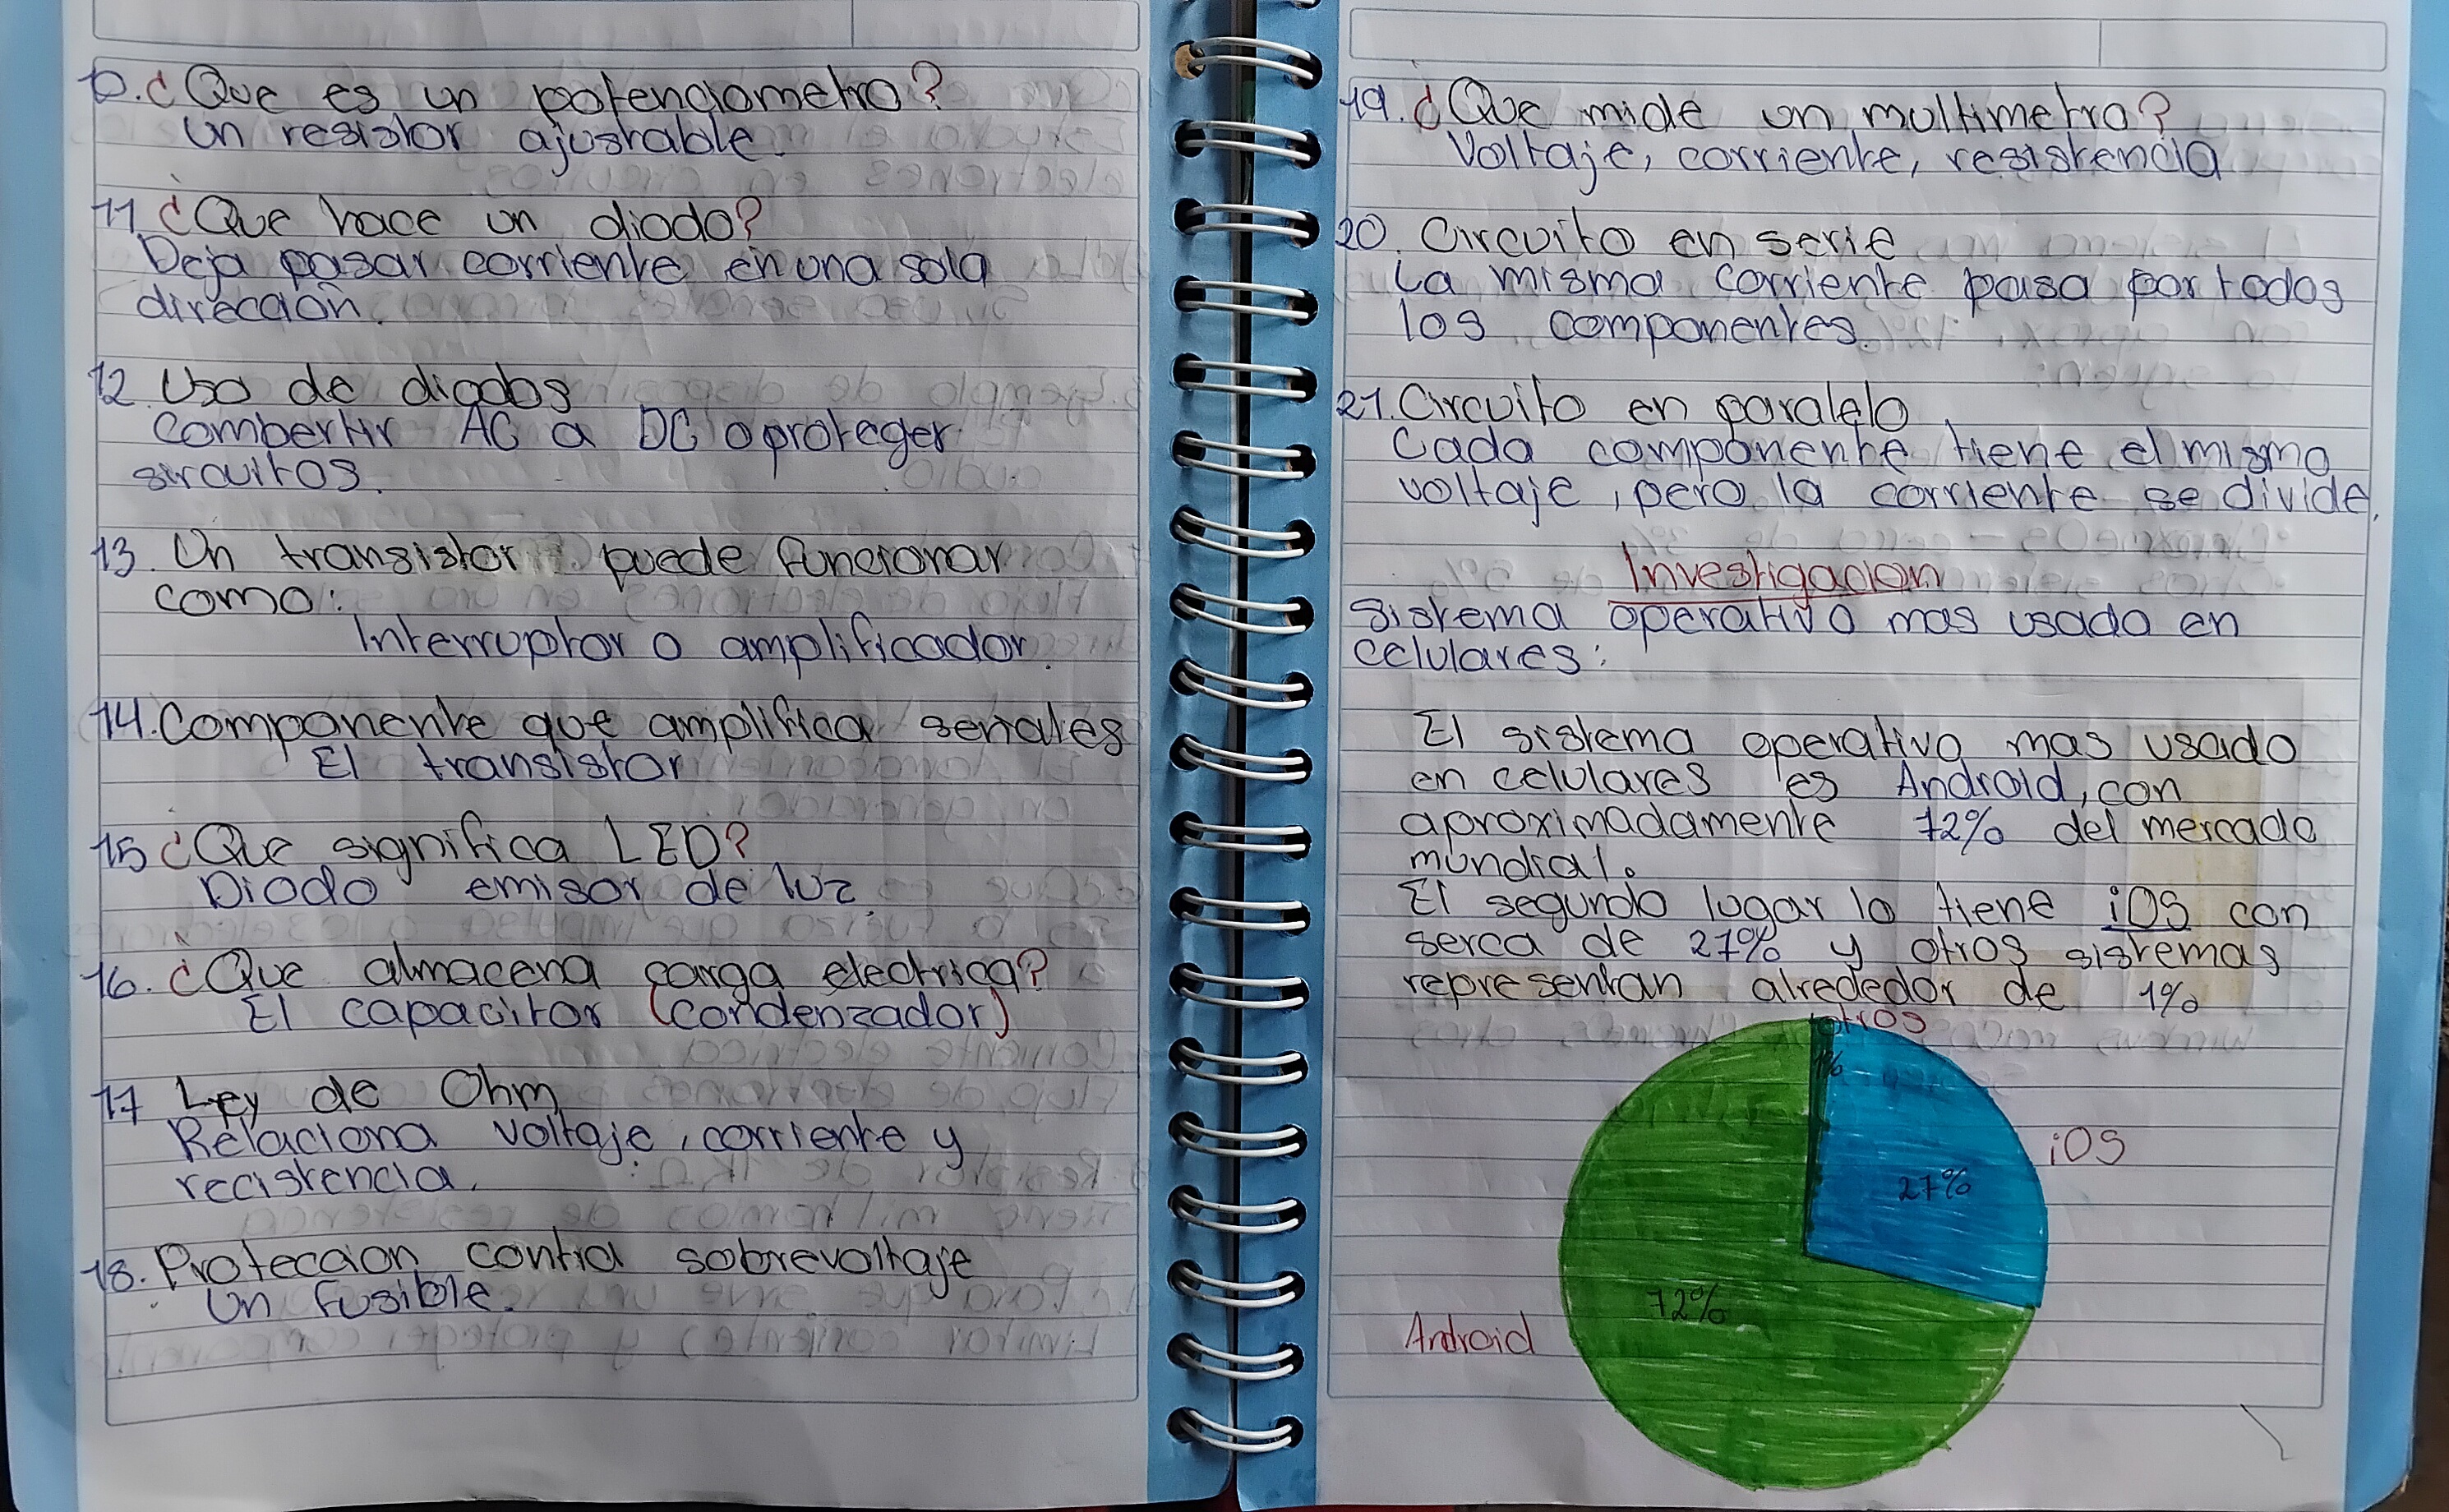 10. ¿Que es un potenciometro?
Un resistor ajustable.
11. ¿Que hace un diodo?
Deja pasar corriente en una sola
dirección.
12. Uso de diodos
Combertir AC a DC o proteger
sircuitos.
13. Un transistor puede funcionar
como:
Interruptor o amplificador.
14. Componente que amplifica señales
El transistor
15 ¿Que significa LED?
Diodo emisor de luz.
16. ¿Que almacena carga electrica?
El capacitor (condenzador)
17 Ley de Ohm
Relaciona voltaje, corriente y
recistencia.
18. Proteccion contra sobrevoltaje
Un fusible.
19. ¿Que mide un multimetro?
Voltaje, corriente, resistencia
20. Circuito en serie
La misma corriente pasa por todos
los componentes.
21. Circuito en paralelo
Cada componente tiene el mismo
voltaje, pero la corriente se divide.
Investigacion
Sistema operativo mas usado en
celulares:
El sistema operativo mas usado
en celulares es Android, con
aproximadamente 72% del mercado
mundial.
El segundo lugar lo tiene iOS con
serca de 27% y otros sistemas
representan alrededor de 1%
otros
1%
iOS
27%
72%
Android